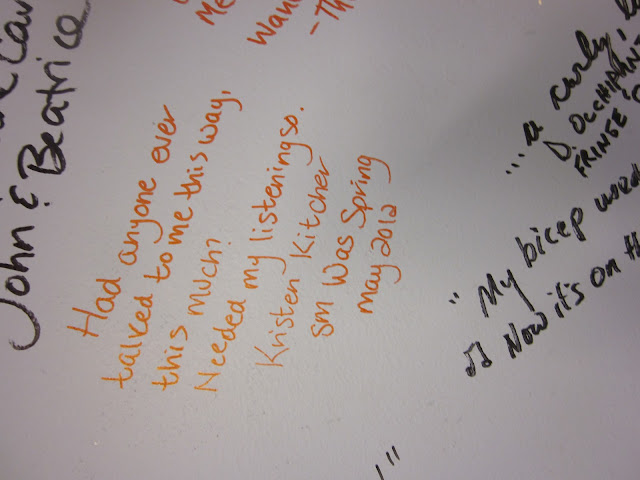 John & Beatrice
Me
Wan
- Th
Had anyone ever
talked to me this way,
this much?
Needed my listening so.
Kristen Kitcher
SM Was Spring
May 2012
... a curly,
D. OCCHIPINT
FRINGE
"My bicep
♫ Now it's on th
!"